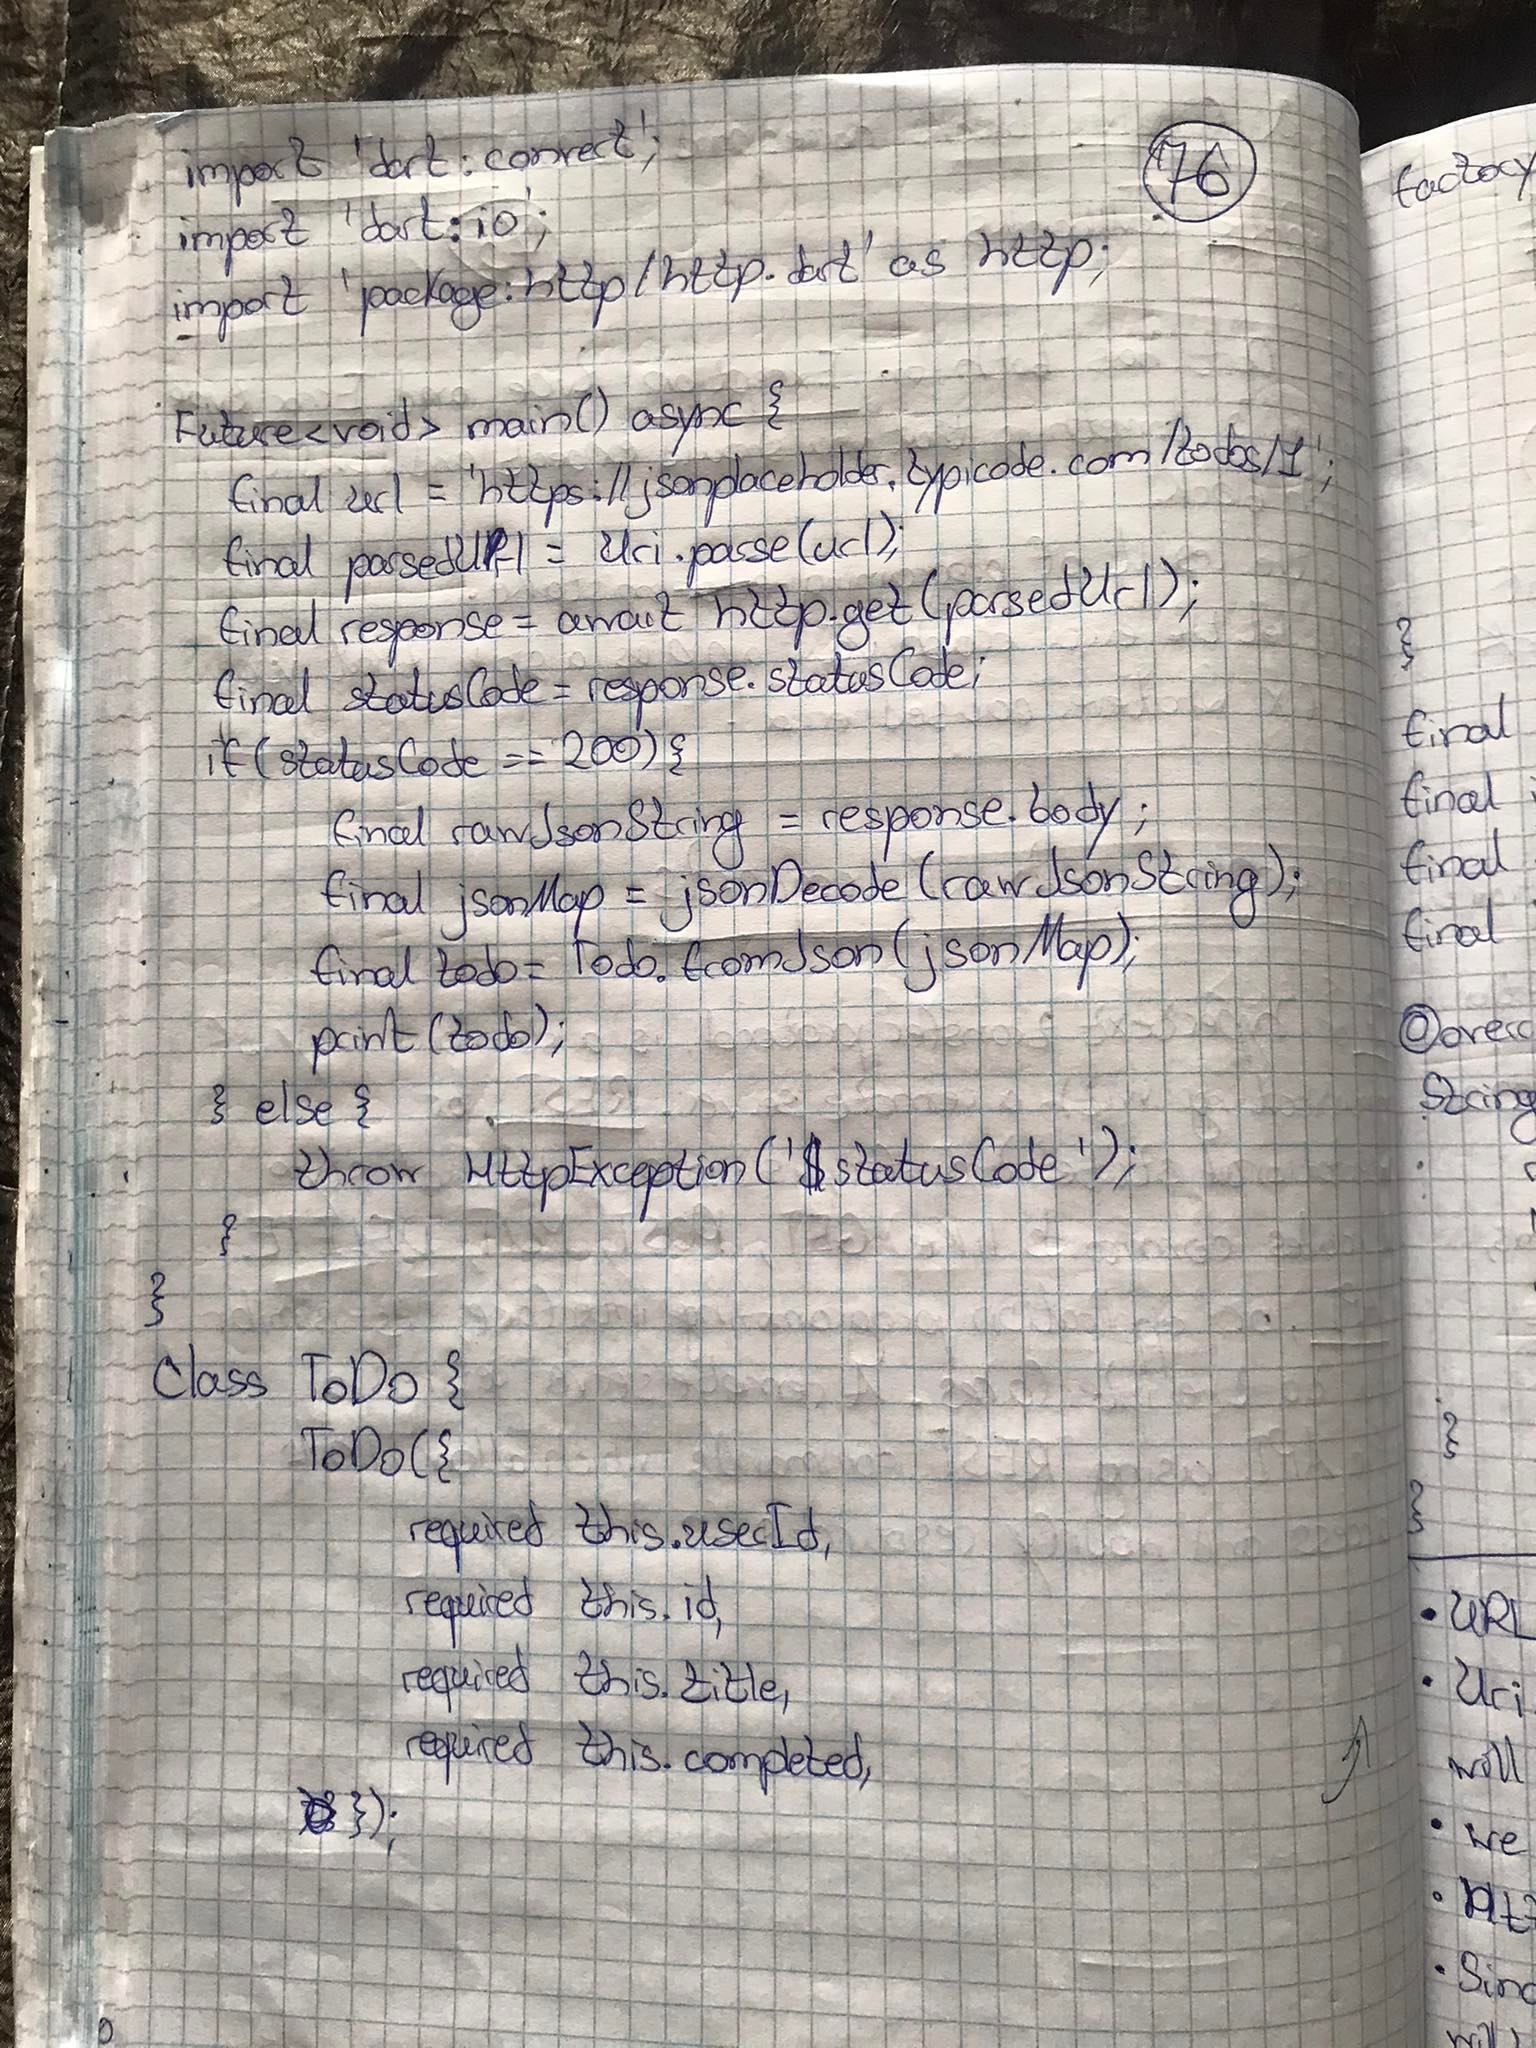 76
import 'dart:convert';
import 'dart:io';
import 'package:http/http.dart' as http;
Future<void> main() async {
final url = 'https://jsonplaceholder.typicode.com/todos/1';
final parsedUrl = Uri.parse(url);
final response = await http.get(parsedUrl);
final statusCode = response.statusCode;
if(statusCode == 200){
final rawJsonString = response.body;
final jsonMap = jsonDecode(rawJsonString);
final todo = Todo.fromJson(jsonMap);
print(todo);
} else {
throw HttpException('$statusCode');
}
}
Class ToDo {
ToDo({
required this.userId,
required this.id,
required this.title,
required this.completed,
});
factory
}
final
final
final
final
String
}
}
• URL
• Uri
will
• we